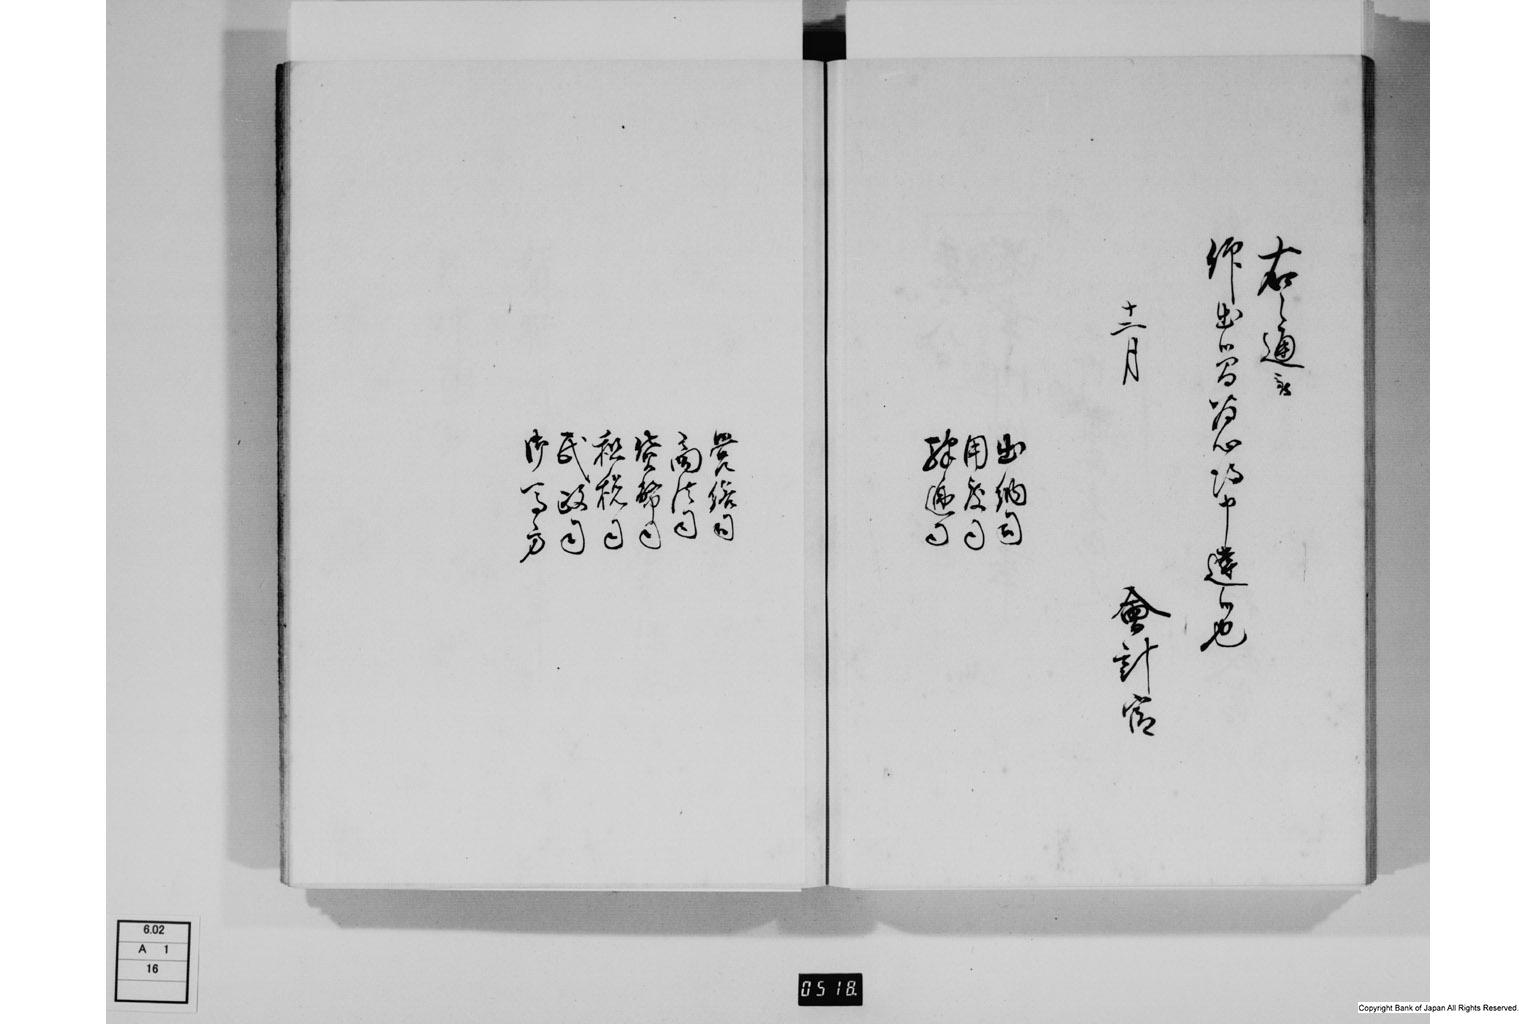 右之通被
仰出候間為心得申達候也
十二月
會計官
出納司
用度司
驛逓司
営繕司
商法司
貨幣司
租税司
民政司
6.02
A 1
16
0518.
Copyright Bank of Japan All Rights Reserved.